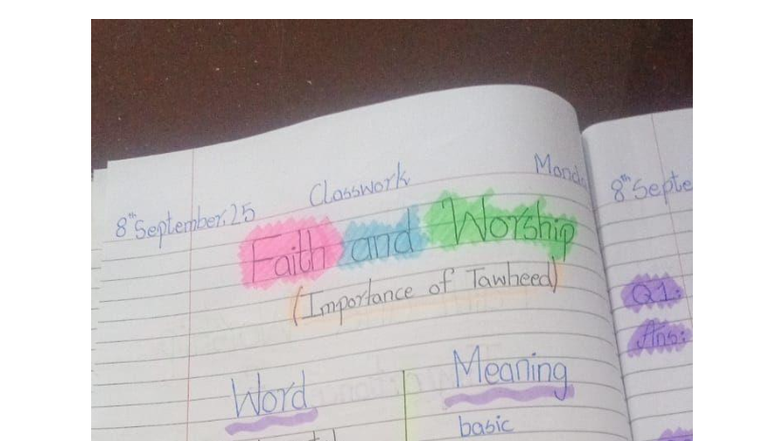 8th September, 25 Classwork
Faith and Worship
(Importance of Tawheed)
Word Meaning
basic
8th Septe
Q1:
Ans: